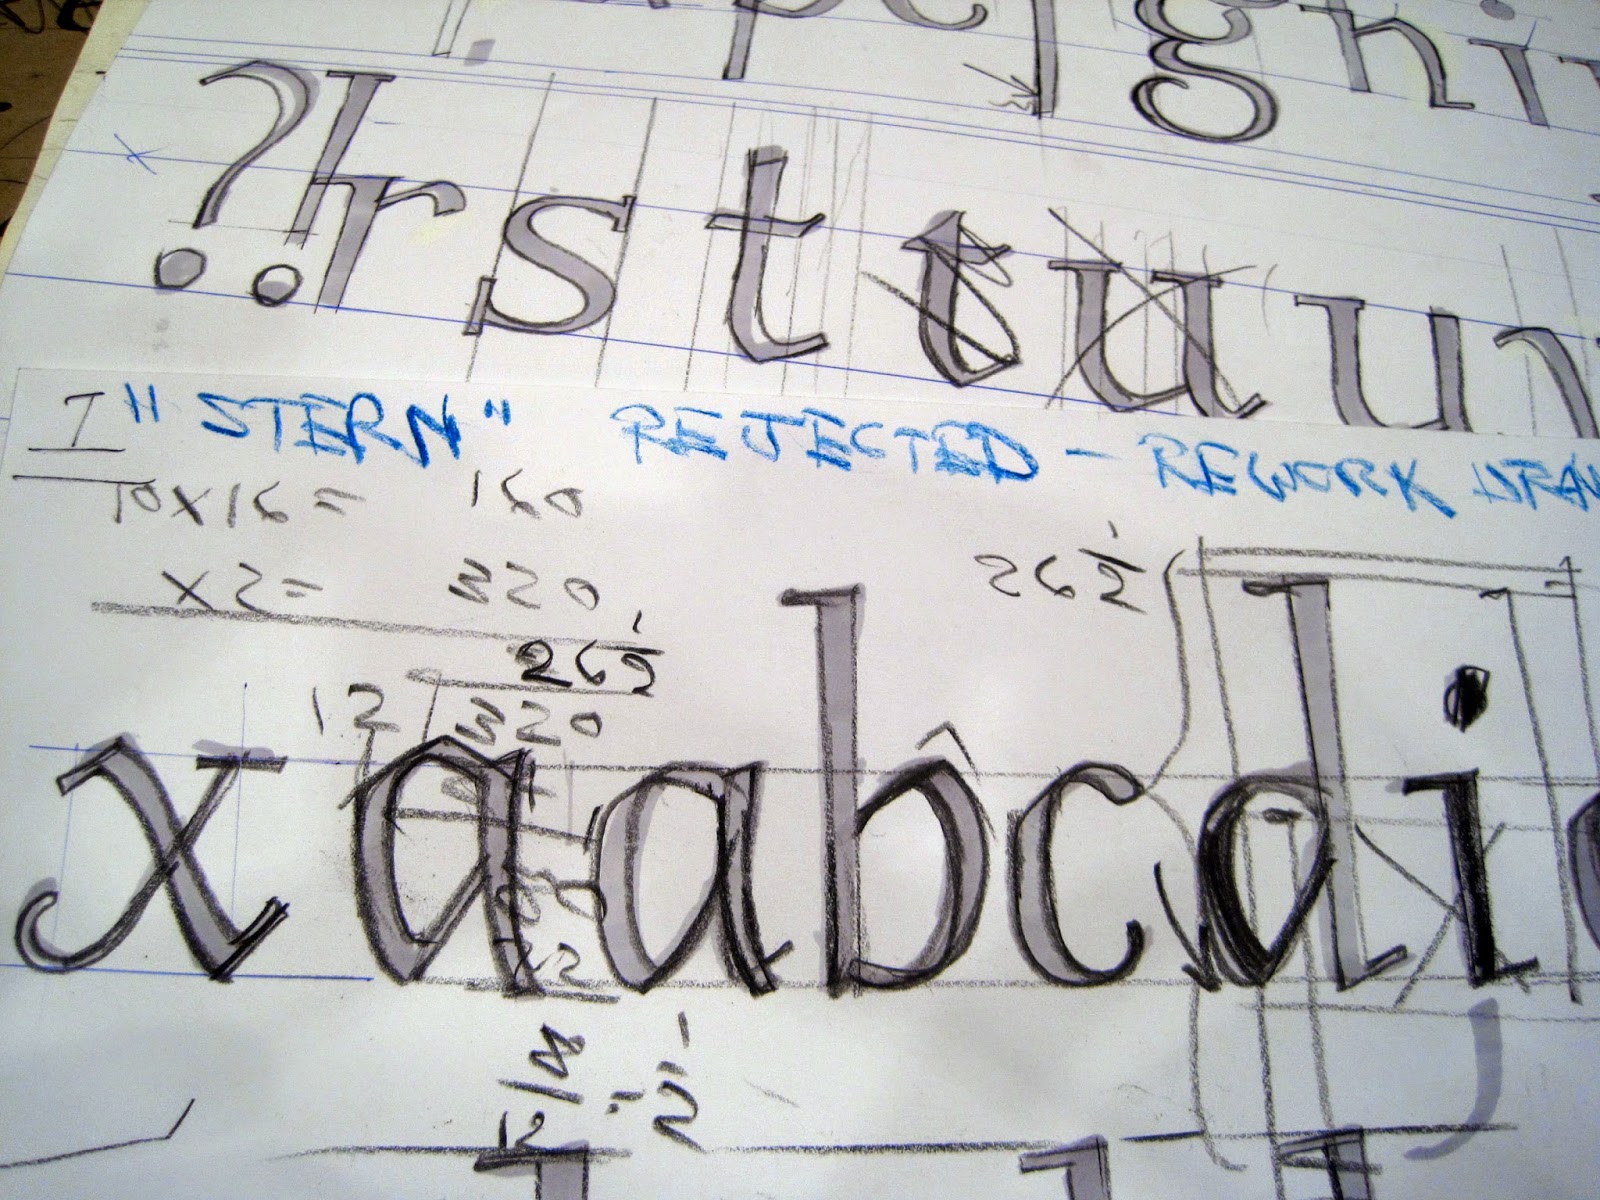 g h i
? ! r s t t u u
I "STERN" REJECTED - REWORK DRAW
10 x 16 = 160
x 2 = 320
26 1/2
26 1/2
12 320
x a a b c d i
8/12 = 1/2